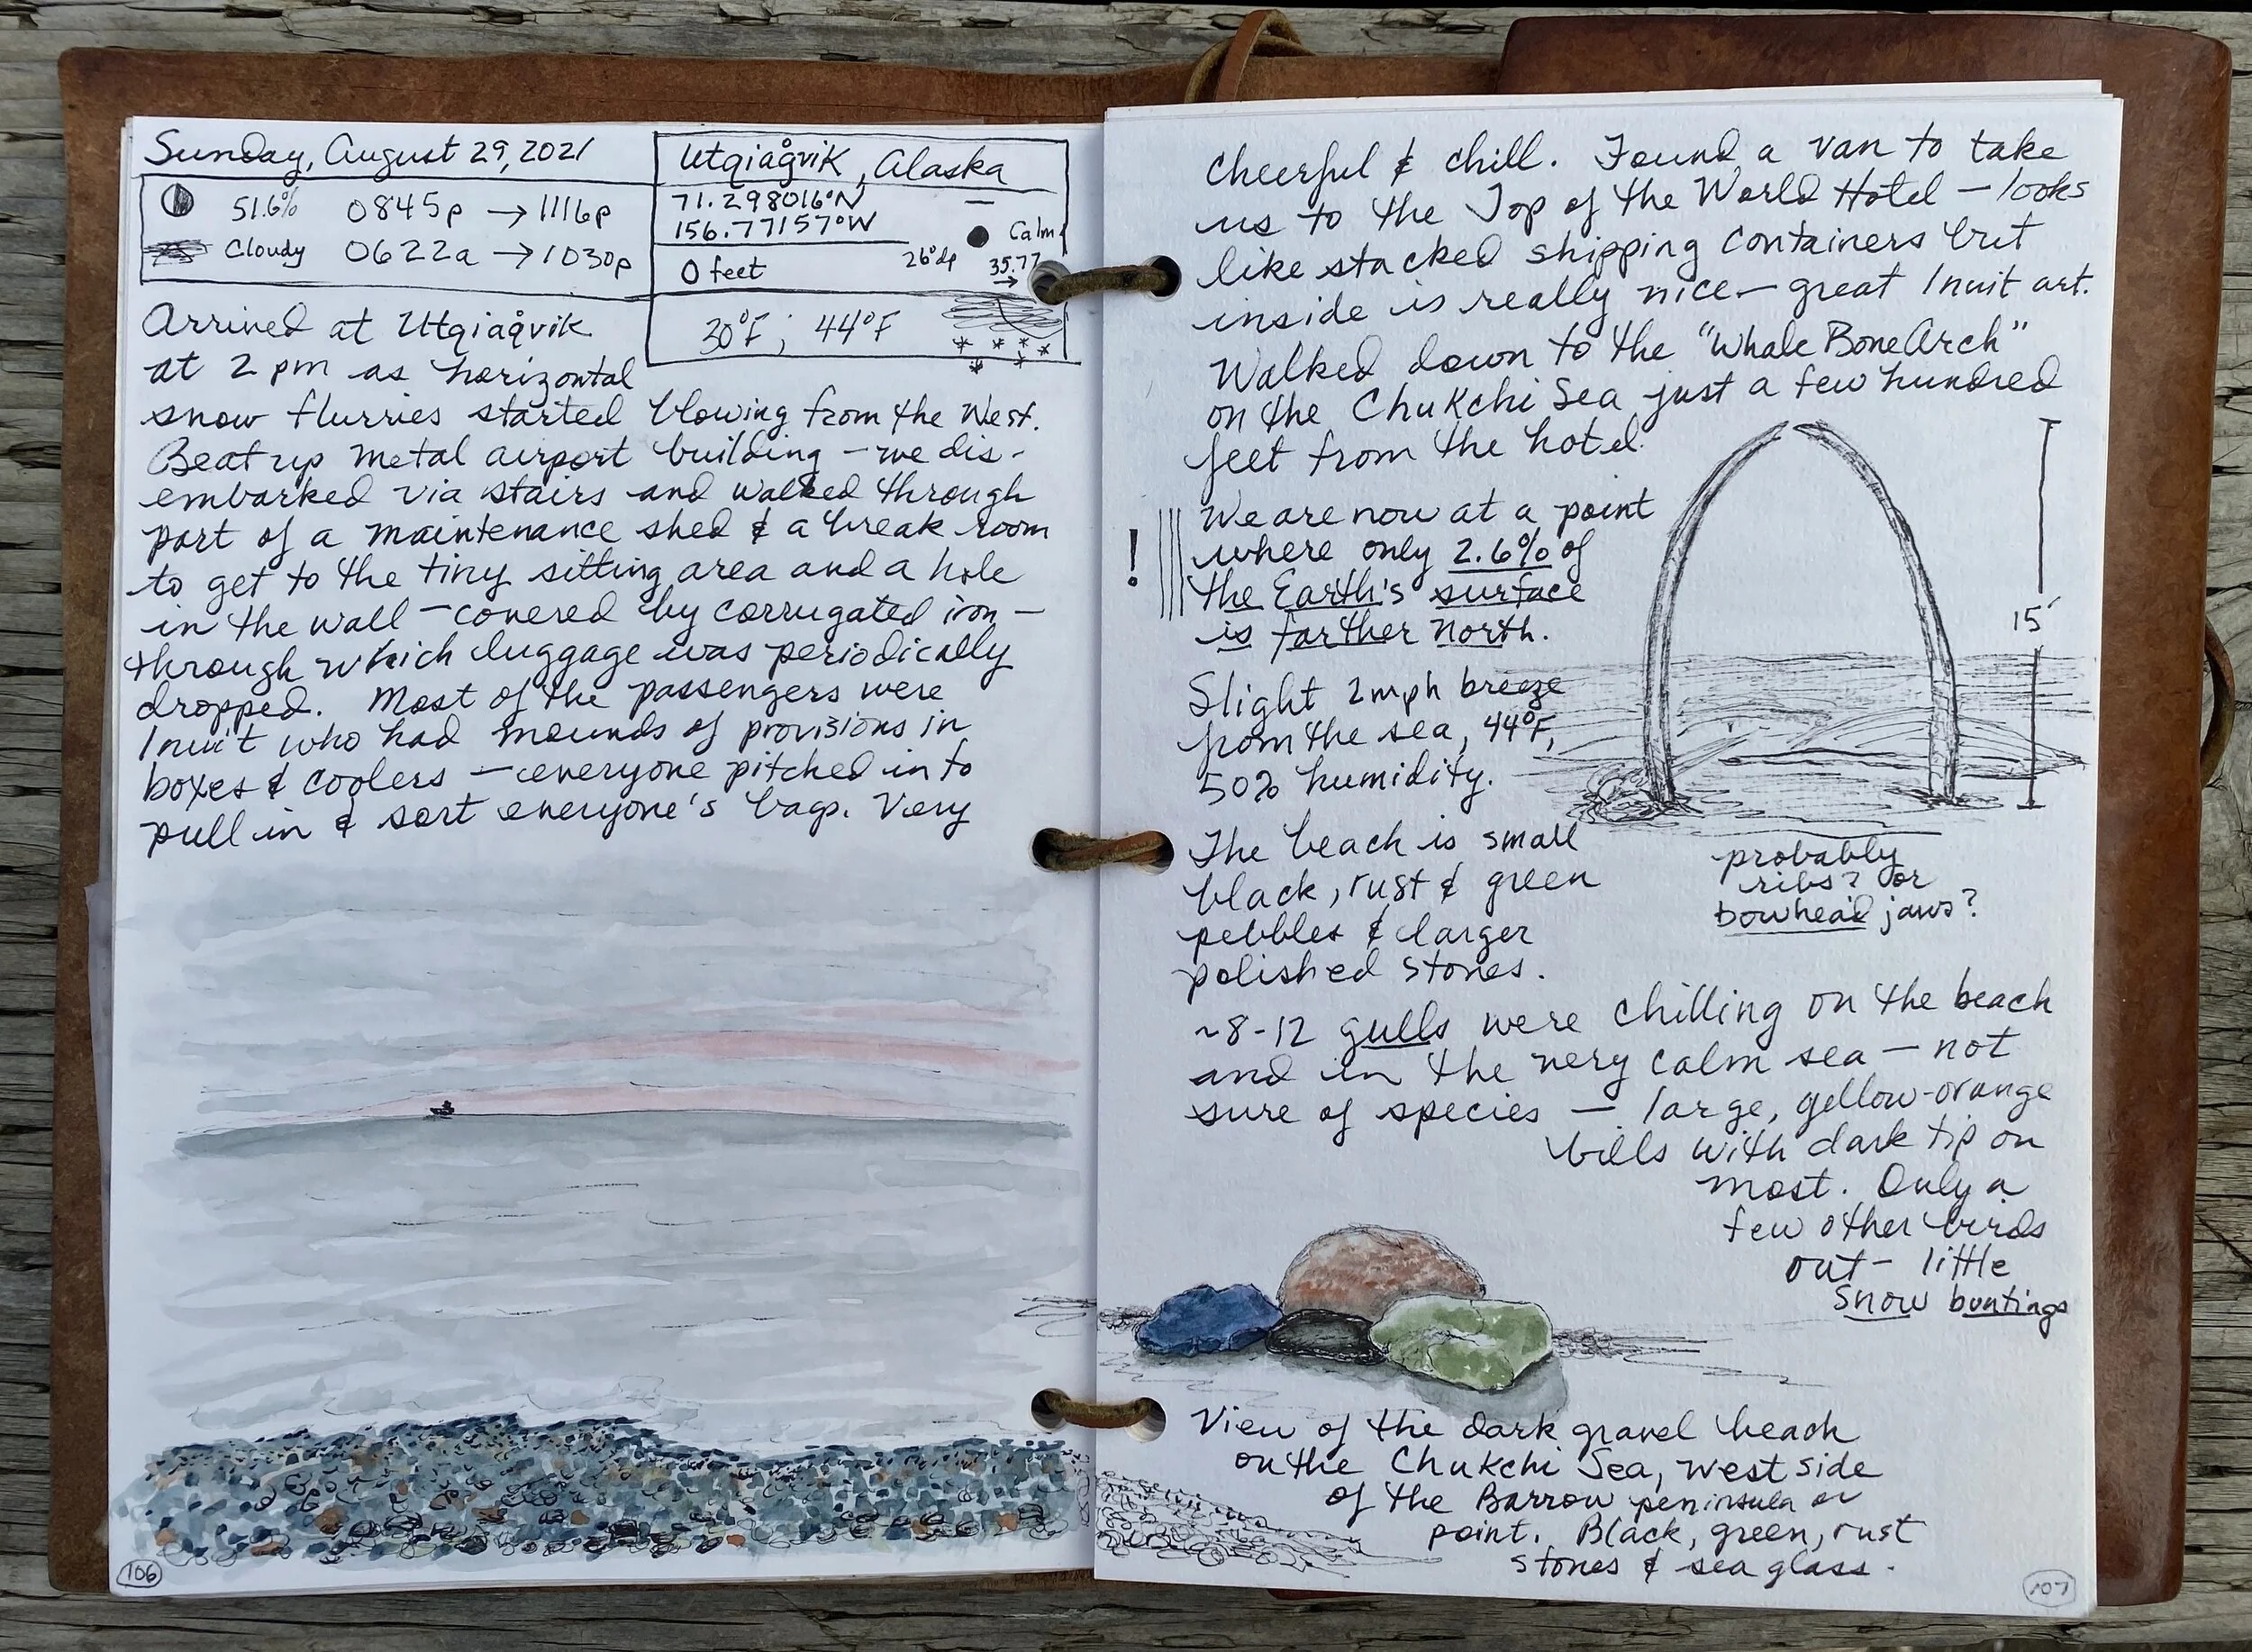 Sunday, August 29, 2021
51.6% 0845p → 1116p
Cloudy 0622a → 1030p
Utqiaġvik, Alaska
71.298016°N
156.77157°W
Calm
0 feet
26°dp
35.77
→
30°F; 44°F
Arrived at Utqiaġvik
at 2 pm as horizontal
snow flurries started blowing from the West.
Beat up metal airport building – we dis-
embarked via stairs and walked through
part of a maintenance shed & a break room
to get to the tiny sitting area and a hole
in the wall – covered by corrugated iron –
through which luggage was periodically
dropped. Most of the passengers were
Inuit who had mounds of provisions in
boxes & coolers – everyone pitched in to
pull in & sort everyone's bags. Very
106
cheerful & chill. Found a van to take
us to the Top of the World Hotel – looks
like stacked shipping containers but
inside is really nice – great Inuit art.
Walked down to the "Whale Bone Arch"
on the Chukchi Sea just a few hundred
feet from the hotel.
! We are now at a point
where only 2.6% of
the Earth's surface
is farther north.
15'
Slight 2mph breeze
from the sea, 44°F,
50% humidity.
probably
ribs? or
bowhead jaws?
The beach is small
black, rust & green
pebbles & larger
polished stones.
~8-12 gulls were chilling on the beach
and in the very calm sea – not
sure of species – large, yellow-orange
bills with dark tip on
most. Only a
few other birds
out – little
Snow buntings
View of the dark gravel beach
on the Chukchi Sea, west side
of the Barrow peninsula or
point. Black, green, rust
stones & sea glass.
107